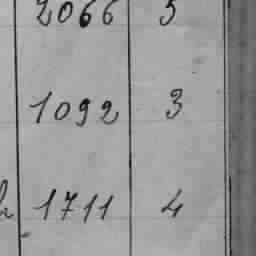 2066 5
1092 3
1711 4